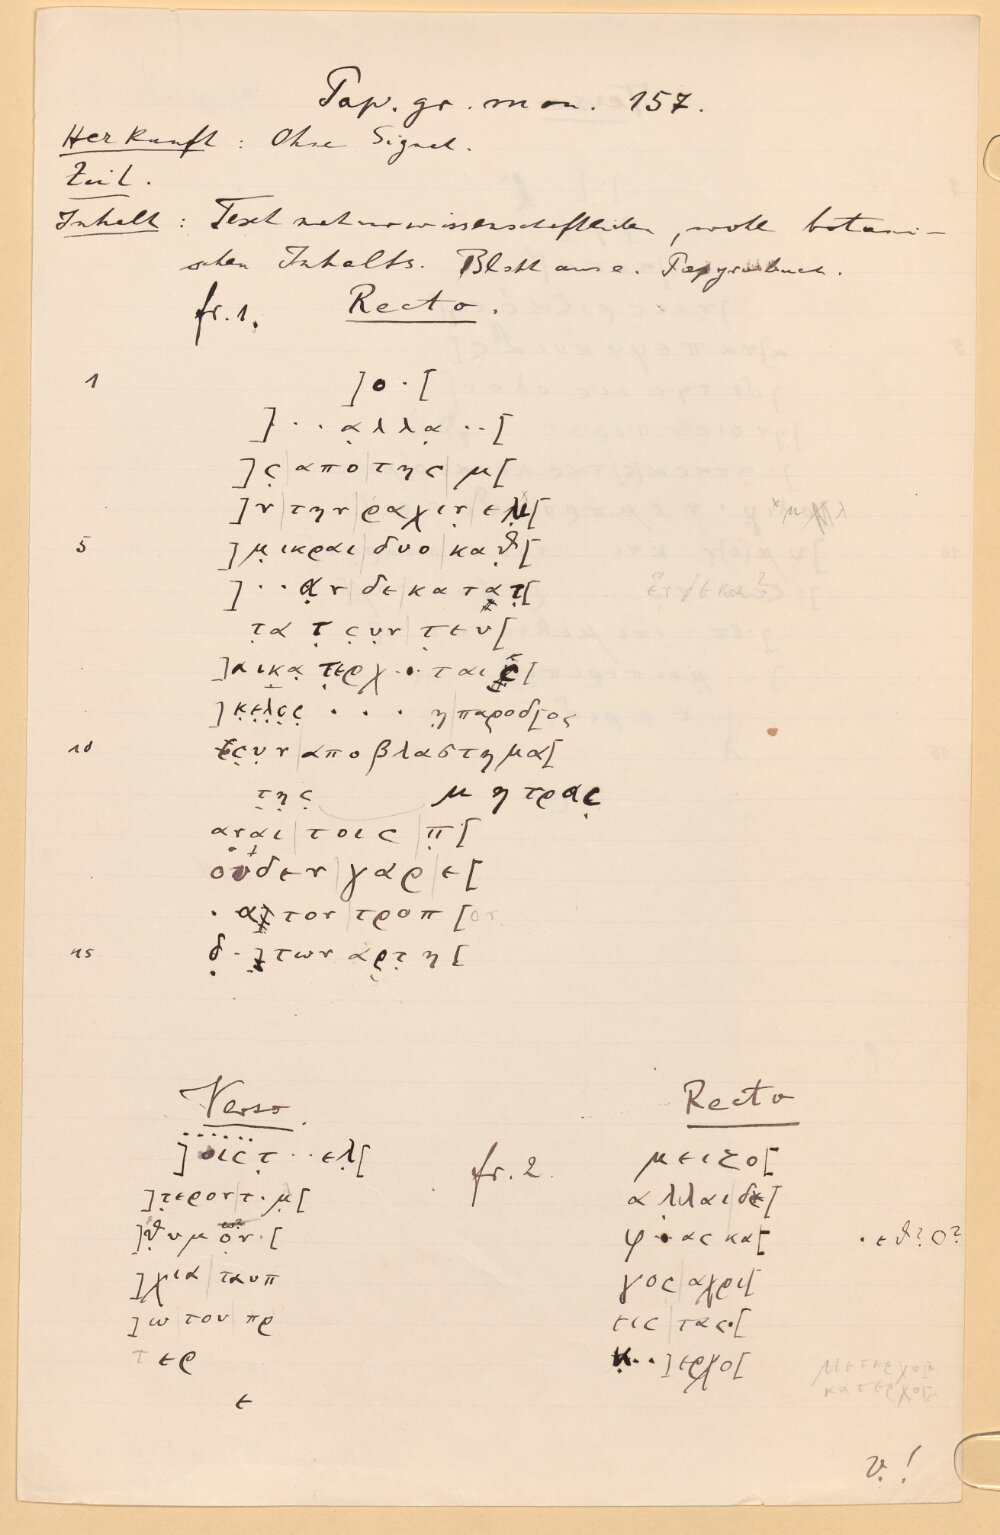 Pap. gr. mon. 157.
Herkunft : Ohne Signat.
Zeit.
Inhalt : Text naturwissenschaftlichen, wohl botani-
schen Inhalts. Blatt aus e. Papyrusbuch.
fr. 1. Recto.
1 ]ο·[
]··αλλα··[
]ς|απο|της|μ[
]ν|την|ραχιν|ελμ[
5 ]μικραι|δυο|καθ[
]··αν|δε|κατατ[
τα τ ςυν τευ[
]αικα τερχ·οται ς[
]κελος · · · η παροδ[ος
10 ςυν|αποβλαστημα[
της μητρας
αναι|τοις|π[
ουδεν|γαρ|ε[
· α τον|τροπ[ον
15 δ·[των αρτη[
Verso
]οιςτ··ελ[
]τεροντ·μ[
]θυμον·[
]χια|ταυπ
]ω|του|πρ
τερ
ε
fr. 2.
Recto
μειζο[
αλλαιδε[
φ·ας κα[ ·εθ? ο?
γος|αχρι[
εις|τας·[
κ··]ερχο[
μετερχοε
κατερχοε
v. !